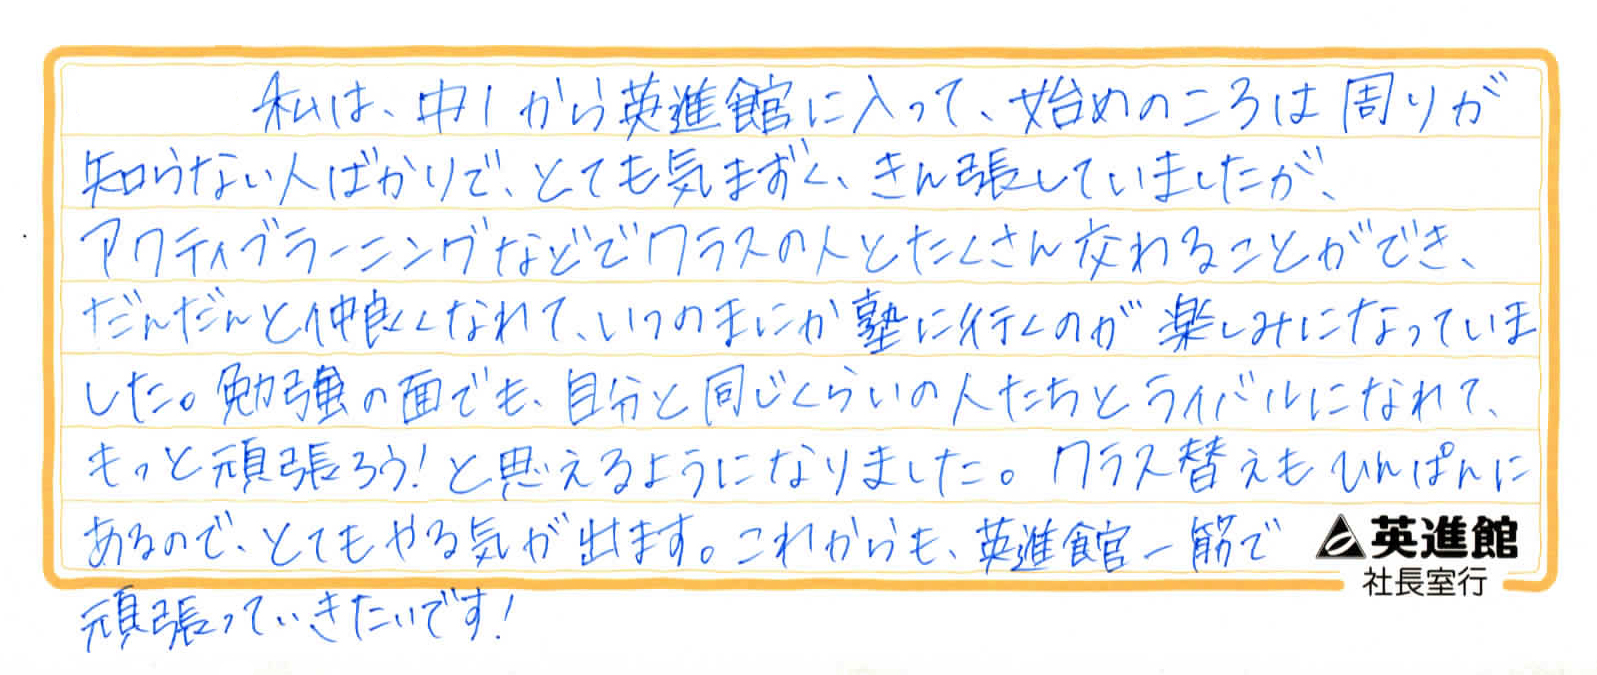 私は、中1から英進館に入って、始めのころは周りが
知らない人ばかりで、とても気まずく、きん張していましたが、
アクティブラーニングなどでクラスの人とたくさん交わることができ、
だんだんと仲良くなれて、いつのまにか塾に行くのが楽しみになっていま
した。勉強の面でも、自分と同じくらいの人たちとライバルになれて、
もっと頑張ろう!と思えるようになりました。クラス替えもひんぱんに
あるので、とてもやる気が出ます。これからも、英進館一筋で
英進館
社長室行
頑張っていきたいです!